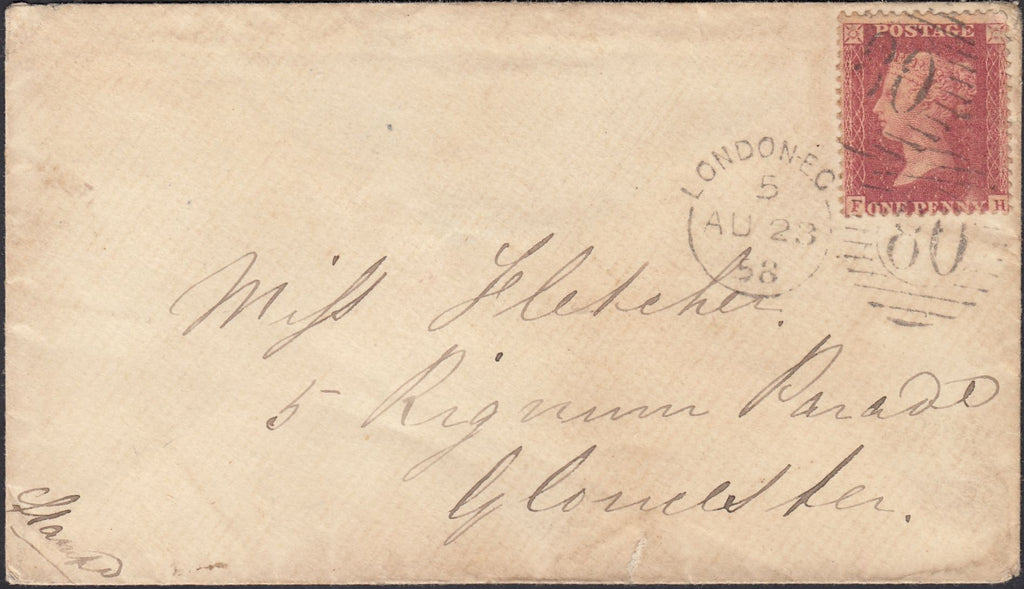 POSTAGE
80
LONDON-EC
5
AU 23
58
F ONE PENNY H
80
Miss Fletcher.
5 Rignum Parade
Gloucester.